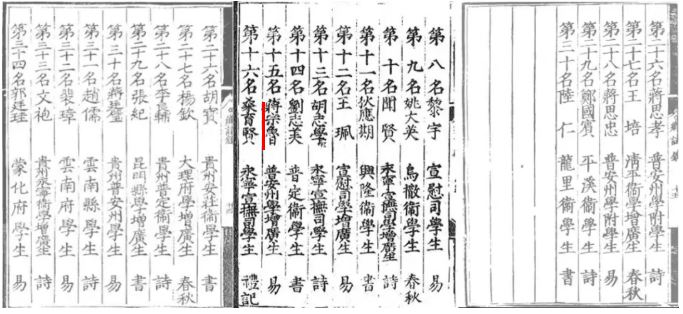 第二十六名胡寶 貴州安莊衞學生 書
第二十七名楊欽 大理府學增廣生 春秋
第二十八名李良輔 貴州普定衞學增廣生 易
第二十九名張紀 昆明縣學增廣生 書
第三十名蔣廷璧 貴州普安州學生 易
第三十一名趙儒 雲南縣學生 詩
第三十二名裴璋 雲南府學生 易
第三十三名文袍 貴州永寧衞學增廣生 詩
第三十四名郭廷珪 蒙化府學生 易
第八名黎宇 宣慰司學生 易
第九名姚大英 烏撒衞學生 春秋
第十名聞賢 永寧宣撫司學增廣生 詩
第十一名狄應期 興隆衞學生 書
第十二名王珮 宣慰司學增廣生 易
第十三名胡忠學 永寧宣撫司學生 詩
第十四名劉志美 普定衞學生 書
第十五名蔣宗魯 普安州學增廣生 易
第十六名桑育賢 永寧宣撫司學生 禮記
第二十六名蔣思孝 普安州學附學生 詩
第二十七名王培 清平衞學增廣生 春秋
第二十八名蔣思忠 普安州學附學生 易
第二十九名鄭國賓 平溪衞學生 詩
第三十名陸仁 龍里衞學生 書